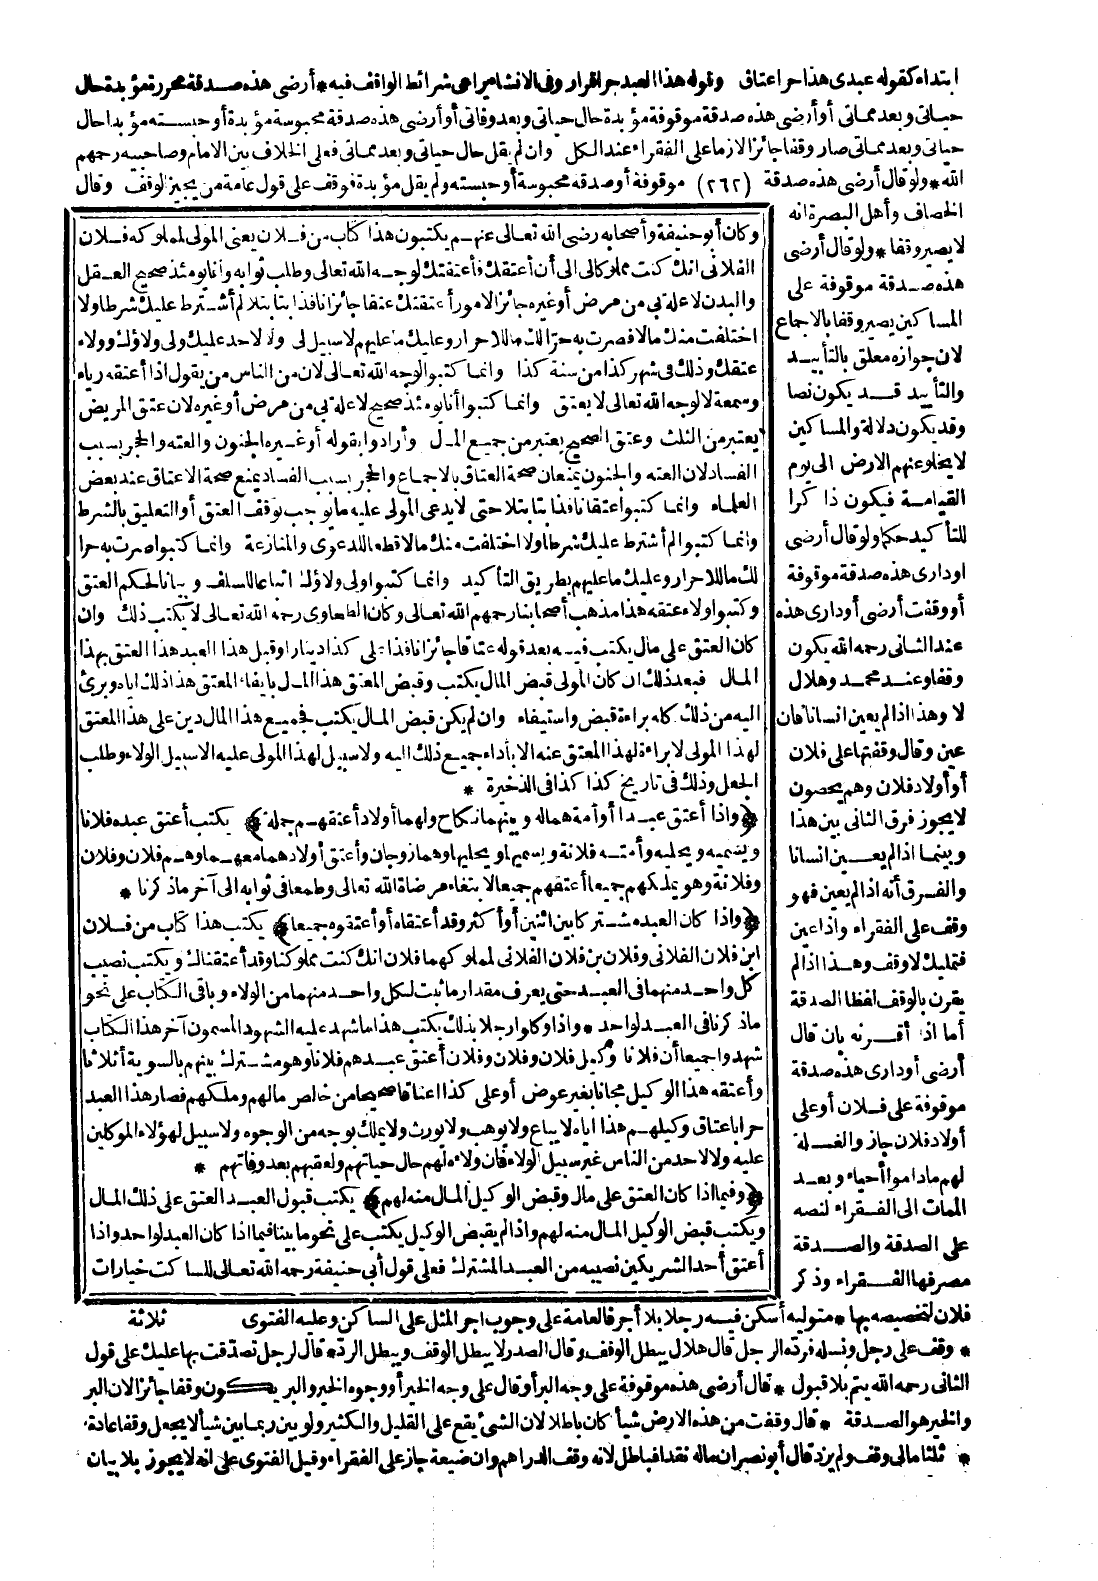 ابتداء كقوله عبدى هذا حر اعتاق وقوله هذا العبد حر اقرار وفى الانشاء يراعى شرائط الواقف فيه * أرضى هذه صدقة محررة مؤبدة حال
حياتى وبعد مماتى أو أرضى هذه صدقة موقوفة مؤبدة حال حياتى وبعد وفاتى أو أرضى هذه صدقة محبوسة مؤبدة أو حبسته مؤبدا حال
حياتى وبعد مماتى صار وقفا جائزا لازما على الفقراء عند الكل وان لم يقل حال حياتى وبعد مماتى فعلى الخلاف بين الامام وصاحبيه رحمهم
الله * ولو قال أرضى هذه صدقة (٢٦٢) موقوفة أو صدقة محبوسة أو حبسته ولم يقل مؤبدة فوقف على قول عامة من يجيز الوقف وقال
الخصاف وأهل البصرة انه
لا يصير وقفا * ولو قال أرضى
هذه صدقة موقوفة على
المساكين يصير وقفا بالاجماع
لان جوازه معلق بالتأبيد
والتأبيد قد يكون نصا
وقد يكون دلالة والمساكين
لا يخلو عنهم الارض الى يوم
القيامة فيكون ذا كرا
للتأكيد حكما ولو قال أرضى
او دارى هذه صدقة موقوفة
أو وقفت أرضى أو دارى هذه
عند الثانى رحمه الله يكون
وقفا وعند محمد وهلال
لا وهذا اذا لم يعين انسانا فان
عين وقال وقفتها على فلان
أو أولاد فلان وهم يحصون
لا يجوز فرق الثانى بين هذا
وبينما اذا لم يعين انسانا
والفرق أنه اذا لم يعين فهو
وقف على الفقراء واذا عين
فتمليك لا وقف وهذا اذا لم
يقرن بالوقف لفظ الصدقة
أما اذا أقرنه بان قال
أرضى أو دارى هذه صدقة
موقوفة على فلان أو على
أولاد فلان جاز والغلة
لهم ماداموا أحياء وبعد
الممات الى الفقراء لنصه
على الصدقة والصدقة
مصرفها الفقراء وذكر
وكان أبو حنيفة وأصحابه رضى الله تعالى عنهم يكتبون هذا كتاب من فلان يعنى المولى لمملوكه فلان
الفلانى انك كنت مملوكالى الى أن أعتقك فأعتقتك لوجه الله تعالى وطلب ثوابه وأنا يومئذ صحيح العقل
والبدن لا علة بى من مرض أو غيره جائز الامور أعتقتك عتقا جائزا نافذا بتا بتلا لم أشترط عليك شرطا ولا
اختلفت منك مالا فصرت به حرا لك ما للاحرار وعليك ما عليهم لا سبيل لى ولا لاحد عليك ولى ولاؤك وولاء
عتقك وذلك فى شهر كذا من سنة كذا وانما كتبوا لوجه الله تعالى لان من الناس من يقول اذا أعتقه رياء
وسمعة لا لوجه الله تعالى لا يعتق وانما كتبوا أنا يومئذ صحيح لا علة بى من مرض أو غيره لان عتق المريض
يعتبر من الثلث وعتق الصحيح يعتبر من جميع المال وأرادوا بقوله أو غيره الجنون والعته والحجر بسبب
الفساد لان العته والجنون يمنعان صحة العتاق بالاجماع والحجر بسبب الفساد يمنع صحة الاعتاق عند بعض
العلماء وانما كتبوا عتقا نافذا بتا بتلا حتى لا يدعى المولى عليه ما يوجب توقف العتق أو التعليق بالشرط
وانما كتبوا لم أشترط عليك شرطا ولا اختلفت منك مالا قطعا للدعوى والمنازعة وانما كتبوا صرت به حرا
لك ما للاحرار وعليك ما عليهم بطريق التأكيد وانما كتبوا ولى ولاؤك اتباعا للسلف وبيانا لحكم العتق
وكتبوا ولاء عتقه هذا مذهب أصحابنا رحمهم الله تعالى وكان الطحاوى رحمه الله تعالى لا يكتب ذلك وان
كان العتق على مال يكتب فيه بعد قوله عتاقا جائزا نافذا على كذا دينارا وقبل هذا العبد هذا العتق بهذا
المال فبعد ذلك ان كان المولى قبض المال يكتب وقبض المعتق هذا المال بايفاء المعتق هذا ذلك اياه وبرئ
اليه من ذلك كله براءة قبض واستيفاء وان لم يكن قبض المال يكتب فجميع هذا المال دين على هذا المعتق
لهذا المولى لا براءة لهذا المعتق عنه الا بأداء جميع ذلك اليه ولا سبيل لهذا المولى عليه الا سبيل الولاء وطلب
الجعل وذلك فى تاريخ كذا كذا فى الذخيرة *
﴿واذا أعتق عبدا أو أمة هما له وبينهما نكاح ولهما أولاد أعتقهم جملة﴾ يكتب أعتق عبده فلانا
ويسميه ويحليه وأمته فلانة ويسميها ويحليها وهما زوجان وأعتق أولادهما معهما وهم فلان وفلان
وفلانة وهو يملكهم جميعا أعتقهم جميعا لابتغاء مرضاة الله تعالى وطمعا فى ثوابه الى آخر ماذكرنا *
﴿واذا كان العبد مشتركا بين اثنين أو أكثر وقد أعتقاه أو أعتقوه جميعا﴾ يكتب هذا كتاب من فلان
ابن فلان الفلانى وفلان بن فلان الفلانى لمملوكهما فلان انك كنت مملوكنا وقد أعتقناك ويكتب نصيب
كل واحد منهما فى العبد حتى يعرف مقدار ما يثبت لكل واحد منهما من الولاء وباقى الكتاب على نحو
ماذكرنا فى العبد لواحد * واذا وكلوا رجلا بذلك يكتب هذا ما شهد عليه الشهود المسمون آخر هذا الكتاب
شهدوا جميعا أن فلانا وكيل فلان وفلان وفلان أعتق عبدهم فلانا وهو مشترك بينهم بالسوية أثلاثا
وأعتقه هذا الوكيل مجانا بغير عوض أو على كذا اعتاقا صحيحا من خالص مالهم وملكهم فصار هذا العبد
حرا باعتاق وكيلهم هذا اياه لا يباع ولا يوهب ولا يورث ولا يملك بوجه من الوجوه ولا سبيل لهؤلاء الموكلين
عليه ولا لاحد من الناس غير سبيل الولاء فان ولاءه لهم حال حياتهم ولعقبهم بعد وفاتهم *
﴿وفيما اذا كان العتق على مال وقبض الوكيل المال منه لهم﴾ يكتب قبول العبد العتق على ذلك المال
ويكتب قبض الوكيل المال منه لهم واذا لم يقبض الوكيل يكتب على نحو ما بينا فيما اذا كان العبد لواحد واذا
أعتق أحد الشريكين نصيبه من العبد المشترك فعلى قول أبى حنيفة رحمه الله تعالى للساكت خيارات
ثلاثة
فلان لتخصيصه بها * متوليه أسكن فيه رجلا بلا أجر فالعامة على وجوب اجر المثل على الساكن وعليه الفتوى
* وقف على رجل ونسله فرده الرجل قال هلال يبطل الوقف وقال الصدر لا يبطل الوقف ويبطل الرد * قال لرجل تصدقت بها عليك على قول
الثانى رحمه الله يتم بلا قبول * قال أرضى هذه موقوفة على وجه البر أو قال على وجه الخير أو وجوه الخير والبر يكون وقفا جائزا لان البر
والخير هو الصدقة * قال وقفت من هذه الارض شيأ كان باطلا لان الشئ يقع على القليل والكثير ولو بين ربما يبين شيأ لا يجعل وقفا عادة
* ثلث مالى وقف ولم يزد قال أبو نصر ان ماله نقدا فباطل لانه وقف الدراهم وان ضيعة جاز على الفقراء وقيل الفتوى على انه لا يجوز بلا بيان